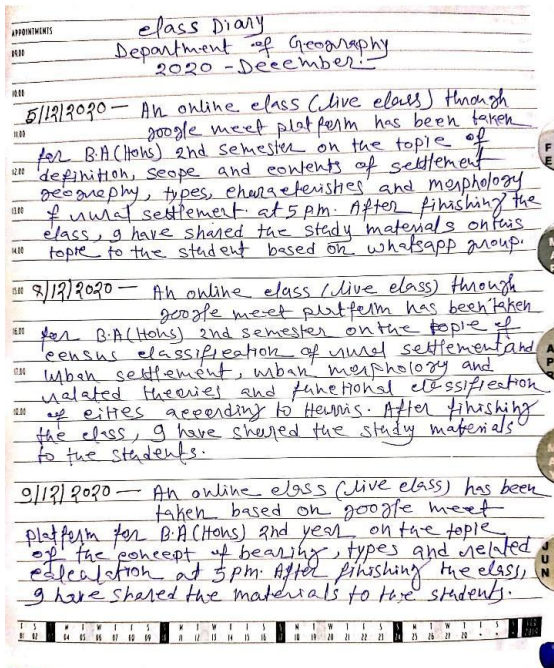 APPOINTMENTS
Class Diary
Department of Geography
09.00
2020 - December:-
10.00
5/12/2020 — An online class (live class) through
11.00
google meet platform has been taken
for B.A (Hons) 2nd semester on the topic of
12.00
definition, scope and contents of settlement
geography, types, characteristics and morphology
13.00
of rural settlement. at 5 pm. After finishing the
class, I have shared the study materials on this
14.00
topic to the student based on whatsapp group.
15.00
8/12/2020 — An online class (live class) through
google meet platform has been taken
16.00
for B.A (Hons) 2nd semester on the topic of
census classification of rural settlement and
17.00
urban settlement, urban morphology and
related theories and functional classification
18.00
of cities according to Harris. After finishing
the class, I have shared the study materials
to the students.
9/12/2020 — An online class (live class) has been
taken based on google meet
platform for B.A (Hons) 2nd year on the topic
of the concept of bearing, types and related
calculation at 5 pm. After finishing the class,
I have shared the materials to the students.
F
E
A
P
R
J
U
N